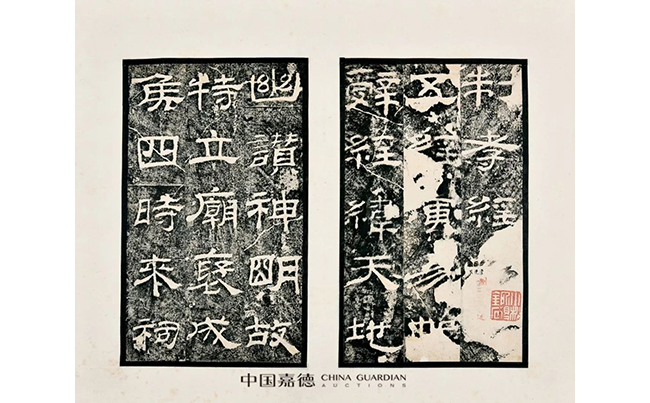 制孝經
五經演易繫
辭經緯天地
幽讚神明故
特立廟褒成
侯四時來祠
中国嘉德 CHINA GUARDIAN
AUCTIONS